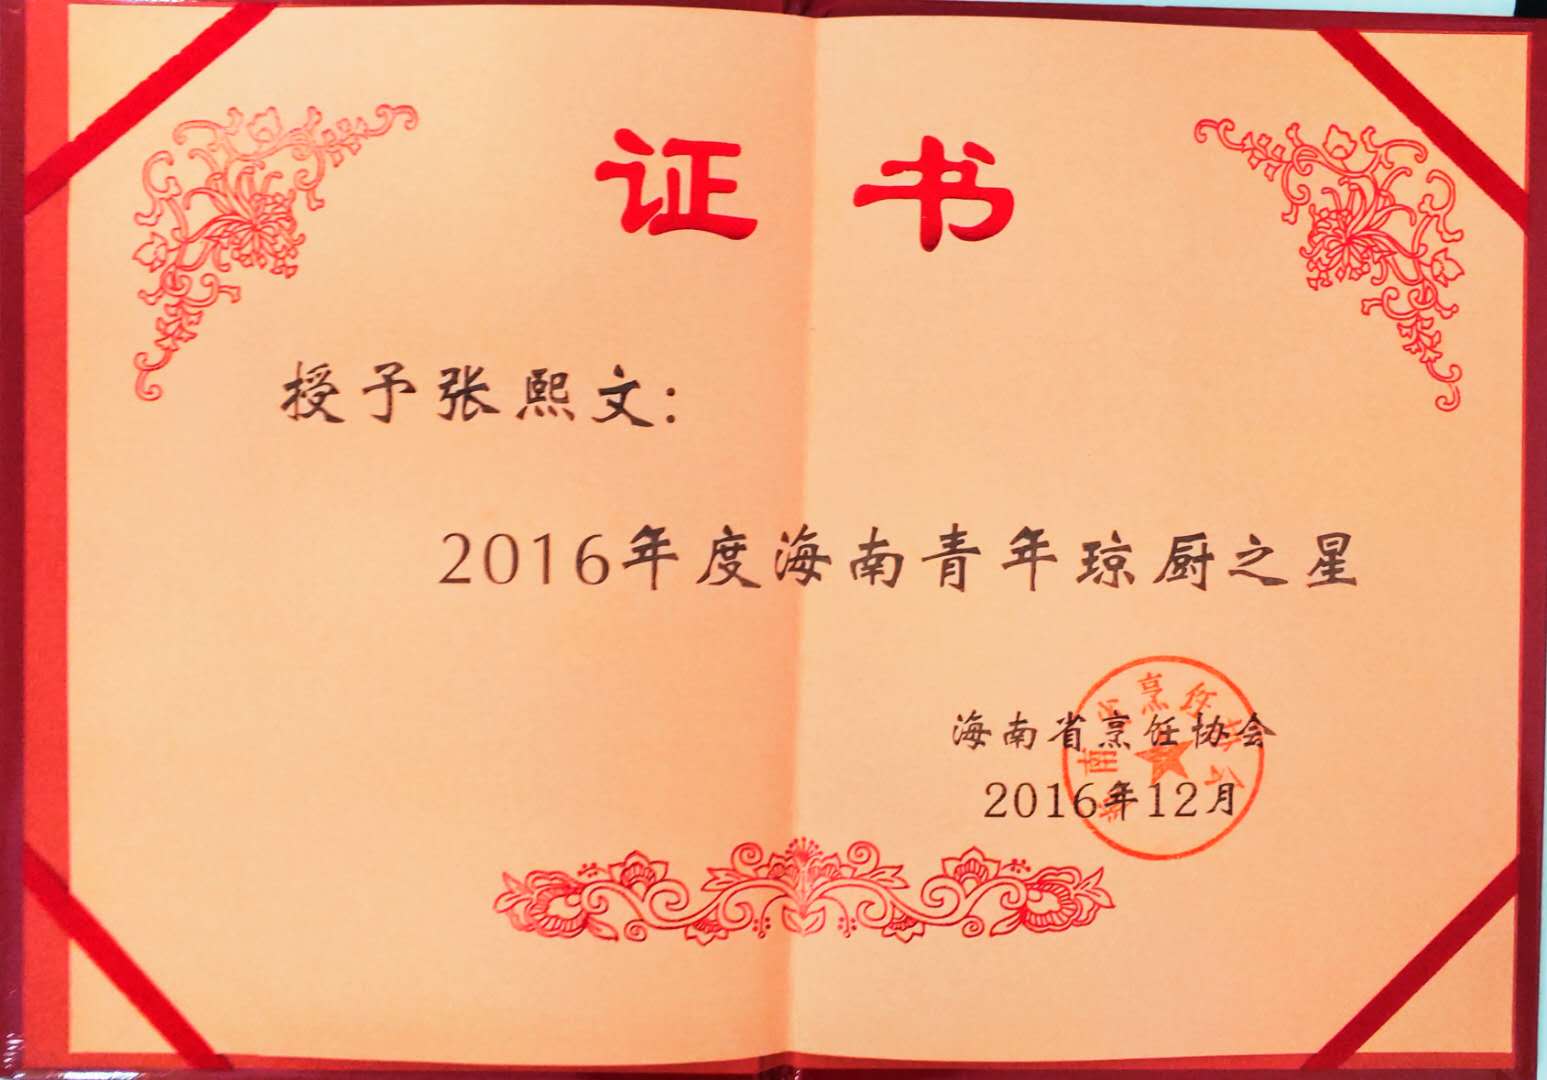 证书
授予张熙文：
2016年度海南青年琼厨之星
海南省烹饪协会
2016年12月